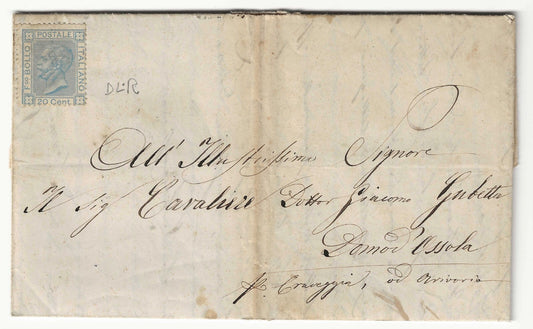 POSTALE
F.CO BOLLO
ITALIANO
20 Cent.
DLR
All' Illustrissimo Signore
Il Sig Cavaliere Dottor Giacomo Gubetta
Domod'Ossola
p. Craveggia, od